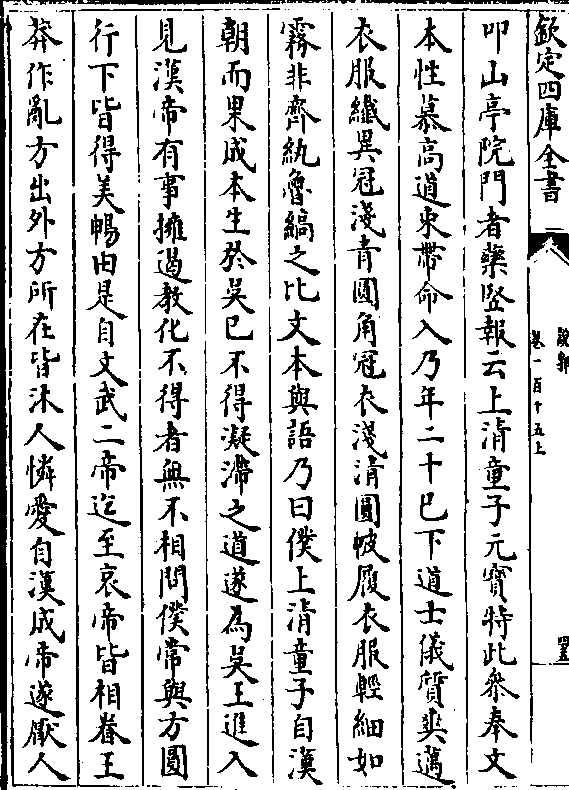 欽定四庫全書
說郛
卷一百十五上
叩山亭院門者藥豎報云上清童子元寶特此叅奉文
本性慕高道束帶命入乃年二十已下道士儀質爽邁
衣服纖異冠淺青圓角冠衣淺清圓帔履衣服輕細如
霧非齊紈魯縞之比文本與語乃曰僕上清童子自漢
朝而果成本生於吳已不得凝滯之道遂為吳王進入
見漢帝有事擁遏教化不得者無不相問僕常與方圓
行下皆得美暢由是自文武二帝迄至哀帝皆相眷王
莽作亂方出外方所在皆沐人憐愛自漢成帝遂厭人